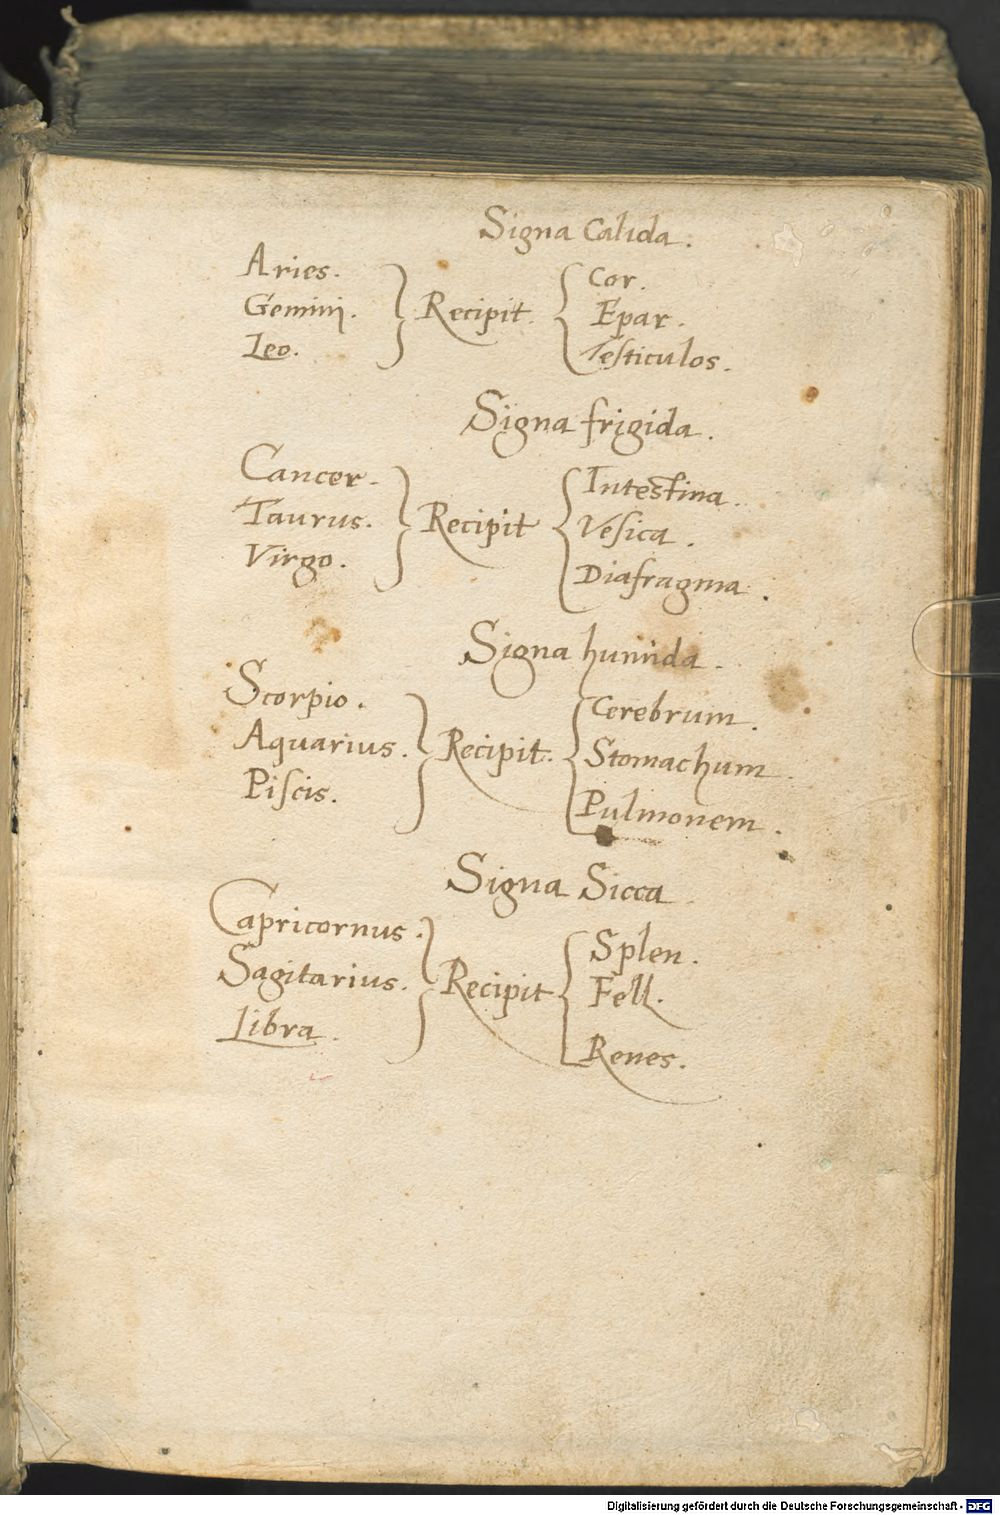 Signa Calida.
Aries.
Gemini.
Leo.
Recipit
Cor.
Epar.
Testiculos.
Signa frigida.
Cancer.
Taurus.
Virgo.
Recipit
Intestina.
Vesica.
Diafragma.
Signa humida.
Scorpio.
Aquarius.
Piscis.
Recipit.
Cerebrum.
Stomachum.
Pulmonem.
Signa Sicca
Capricornus.
Sagitarius.
Libra.
Recipit
Splen.
Fell.
Renes.
Digitalisierung gefördert durch die Deutsche Forschungsgemeinschaft - DFG